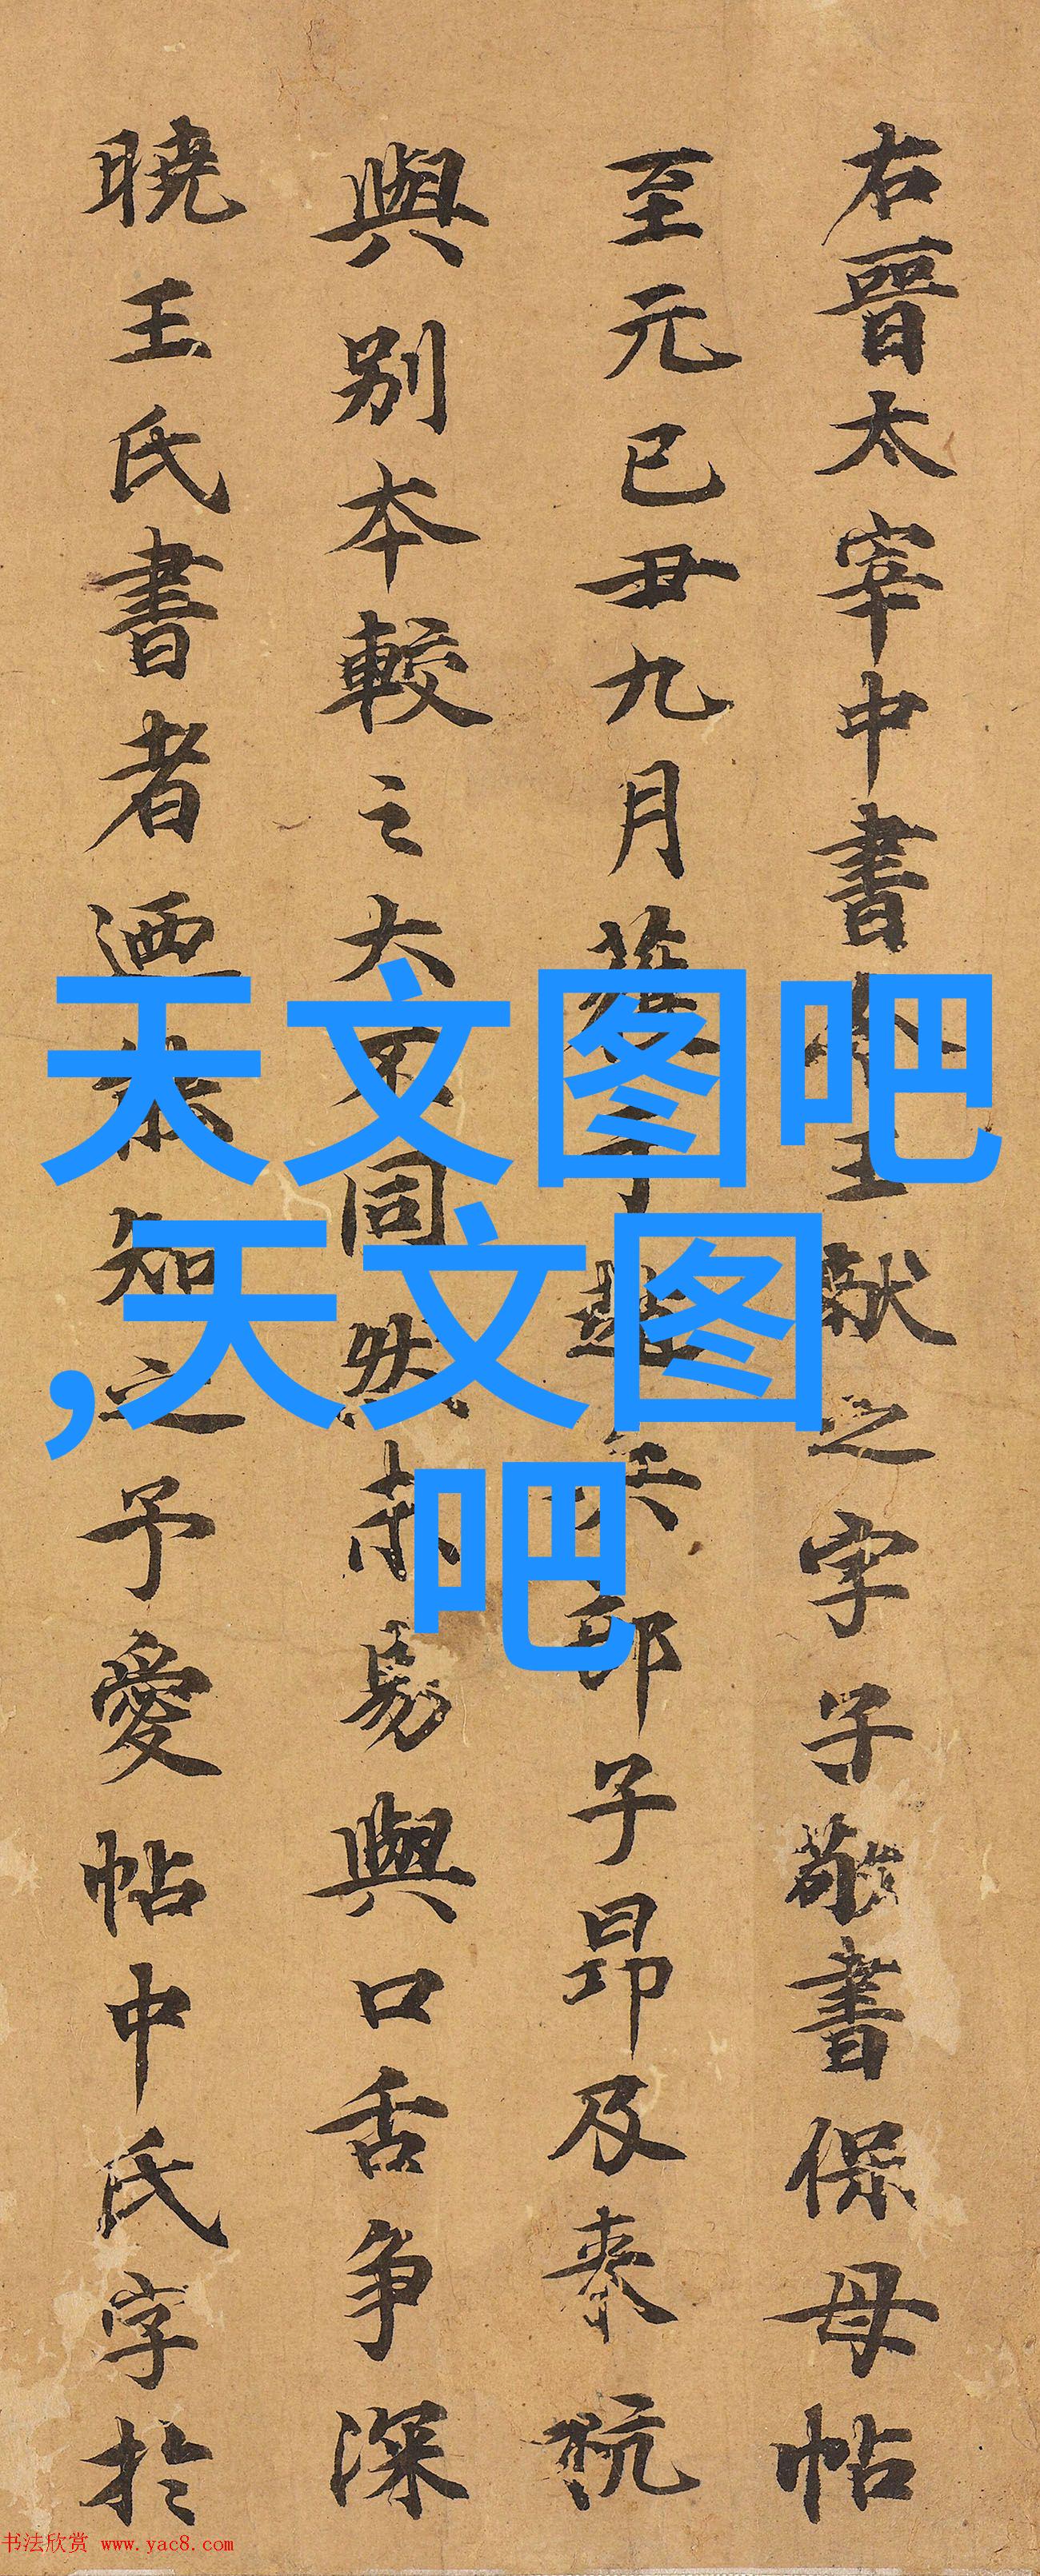 右晉太宰中書令王献之字子敬書保母帖
至元已丑九月獲于趙兵部子昂及来杭
與别本較之大不同然易與口舌争深
曉王氏書者迺知之予愛帖中氏字於
天文图吧
,天文图
吧
书法欣赏 www.yac8.com